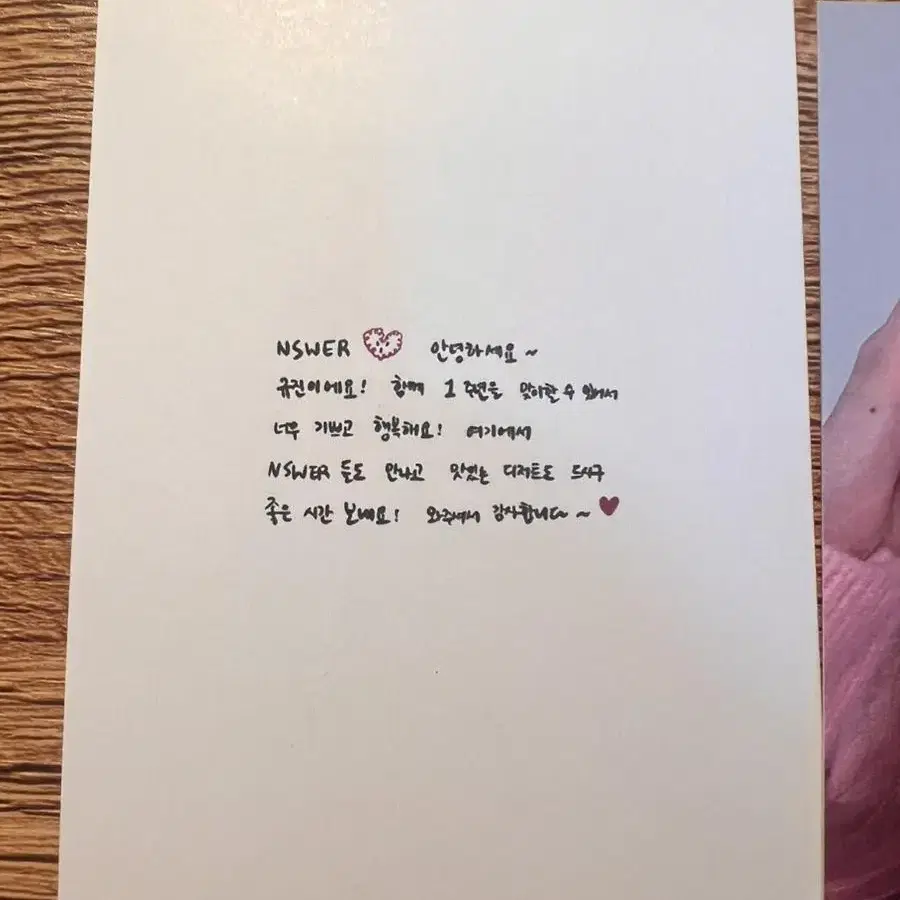 NSWER 안녕하세요~
규진이에요! 함께 1주년을 맞이할 수 있어서
너무 기쁘고 행복해요! 여기에서
NSWER 들도 만나고 맛있는 디저트도 드시구
좋은 시간 보내요! 와주셔서 감사합니다~